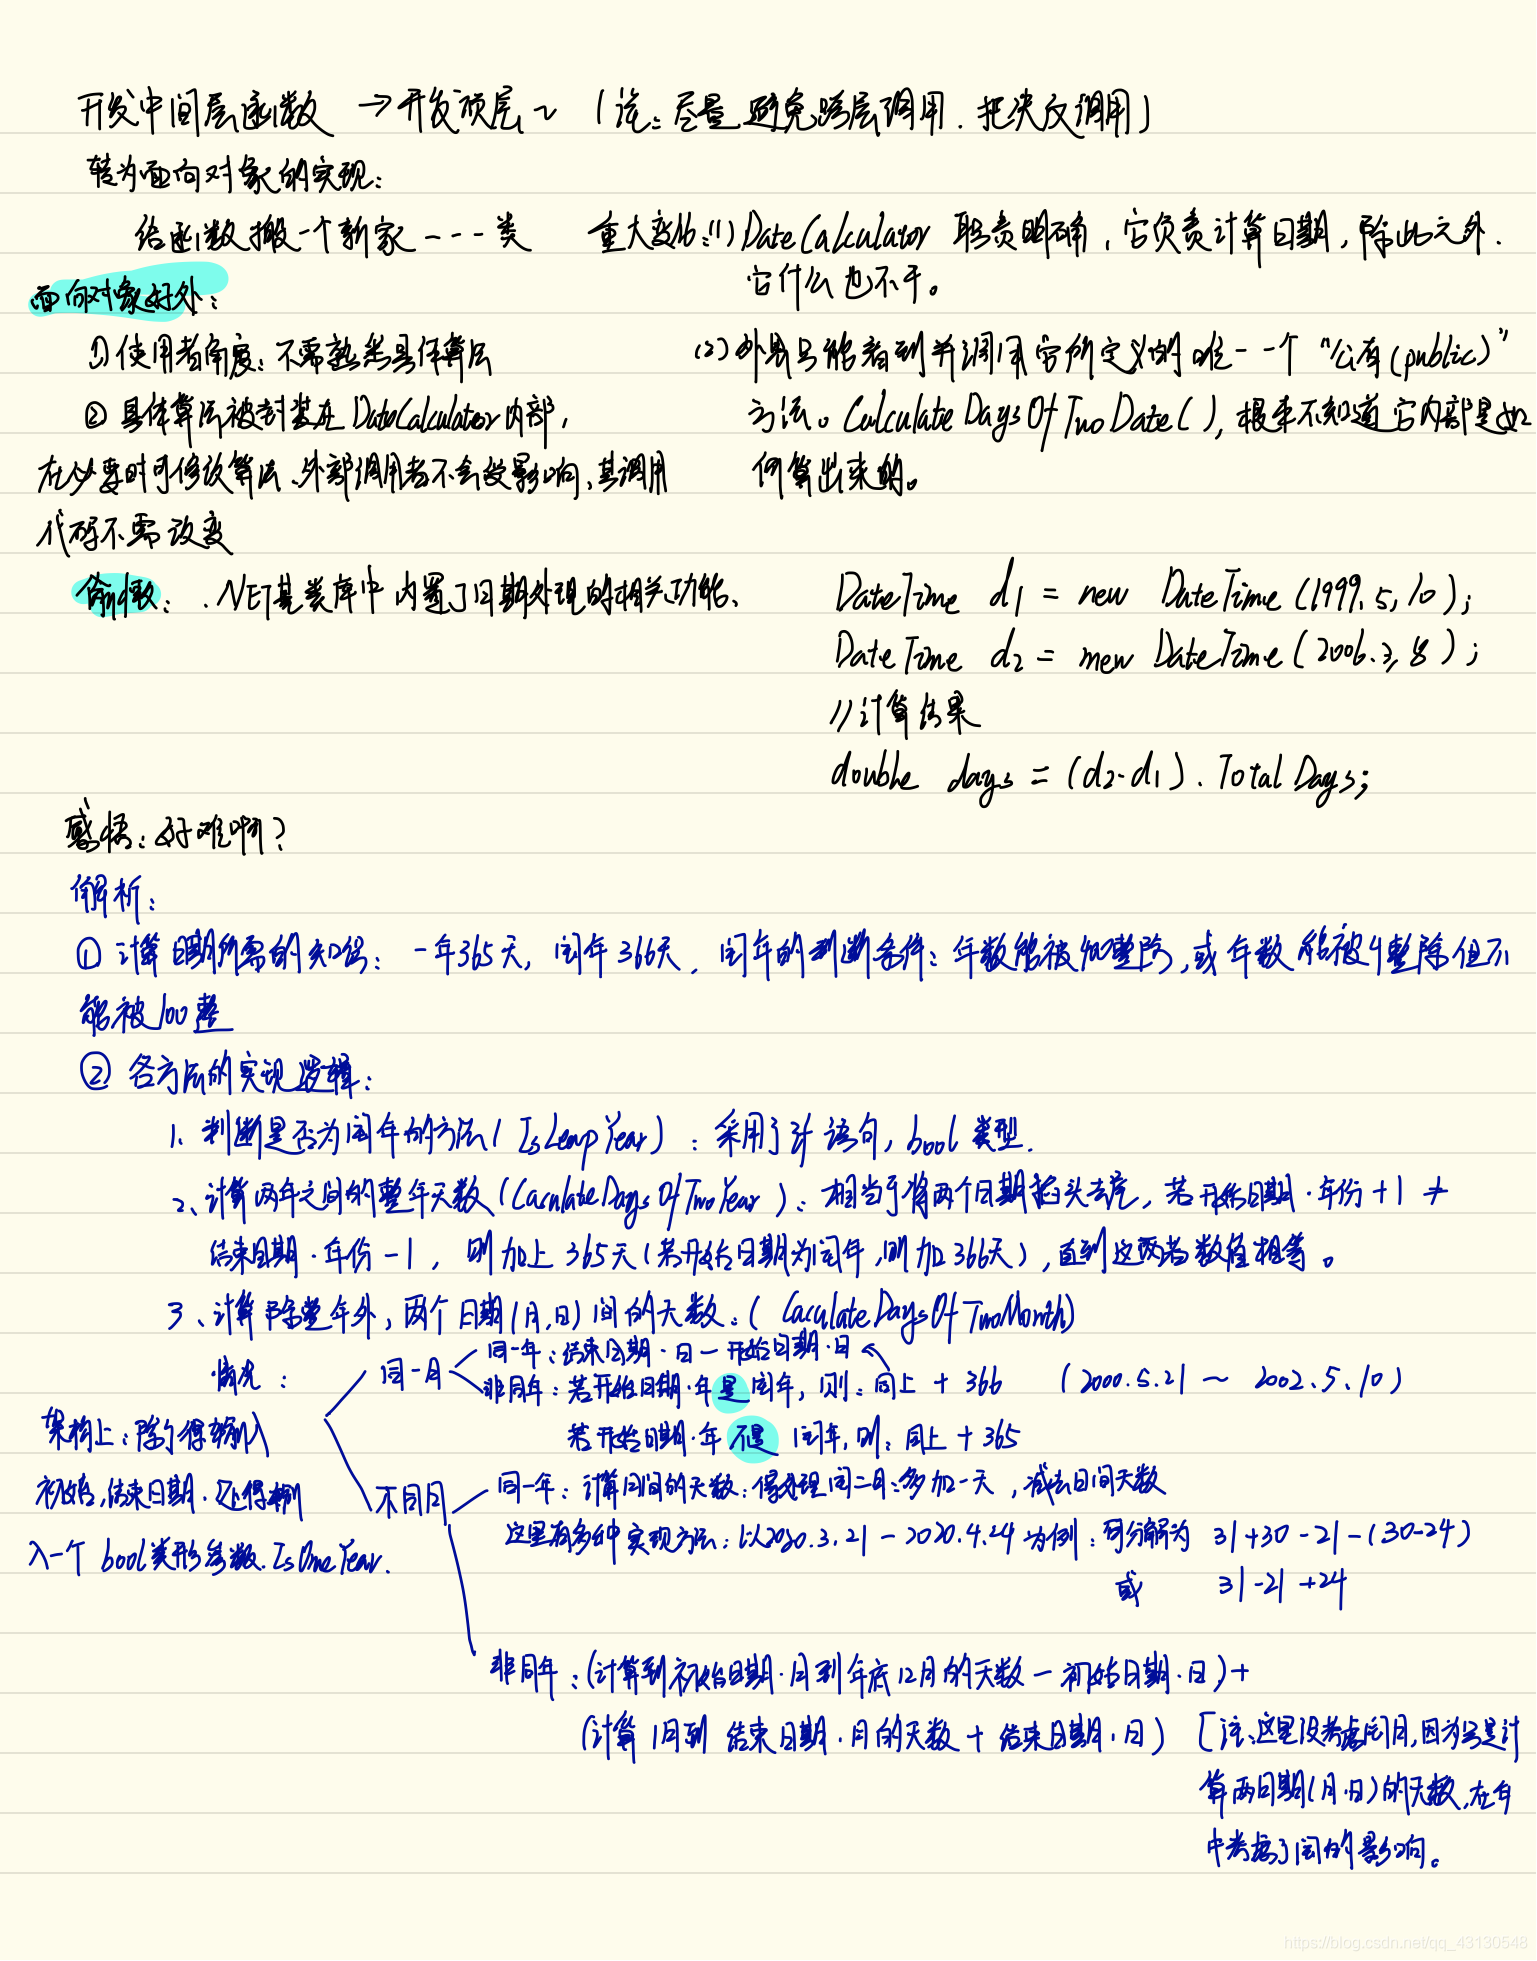 开发中间层函数 →开发顶层～ (注:尽量避免跨层调用.杜决反调用)
转为面向对象的实现:
给函数搬一个新家---类
重大变化:(1) DateCalculator 职责明确,它负责计算日期,除此之外.
它什么也不干。
面向对象好处:
①使用者角度:不需熟悉具体算法
(2)外界只能看到并调用它所定义的唯一一个“公有(public)”
②具体算法被封装在DateCalculator内部,
方法。CalculateDaysOfTwoDate(),根本不知道它内部是如
在必要时可修改算法、外部调用者不会受影响,其调用
何算出来的。
代码不需改变
偷懒:.NET基类库中内置了日期处理的相关功能、
DateTime d1 = new DateTime(1999.5,10);
DateTime d2 = new DateTime(2006.3,8);
//计算结果
double days = (d2-d1).TotalDays;
感悟:好难啊?
解析:
①计算日期所需的知识:一年365天,闰年366天.闰年的判断条件:年数能被400整除,或年数能被4整除但不
能被100整
②各方法的实现逻辑:
1、判断是否为闰年的方法(IsLeapYear):采用了if语句,bool类型.
2、计算两年之间的整年天数(CaculateDaysOfTwoYear):相当于将两个日期掐头去尾,若开始日期.年份+1≠
结束日期.年份-1,则加上365天(若开始日期为闰年,则加366天),直到这两者数值相等。
3、计算除整年外,两个日期(月,日)间的天数:(CaculateDaysOfTwoMonth)
情况:
同一月
同一年:结束日期.日-开始日期.日
非同年:若开始日期.年是闰年,则:同上+366 (2000.5.21～2002.5.10)
若开始日期.年不是闰年,则:同上+365
架构上:除了得输入
初始,结束日期.还得输
入一个bool类形参数.IsOneYear.
不同月
同一年:计算月间的天数:得处理闰二月:多加一天,减去日间天数
这里有多种实现方法:以2020.3.21-2020.4.24为例:可分解为 31+30-21-(30-24)
或 31-21+24
非同年:(计算到初始日期.月到年底12月的天数-初始日期.日)+
(计算1月到结束日期.月的天数+结束日期.日)
[注:这里没考虑闰月,因为只是计
算两日期(月.日)的天数,在年
中考虑了闰的影响。
https://blog.csdn.net/qq_43130548